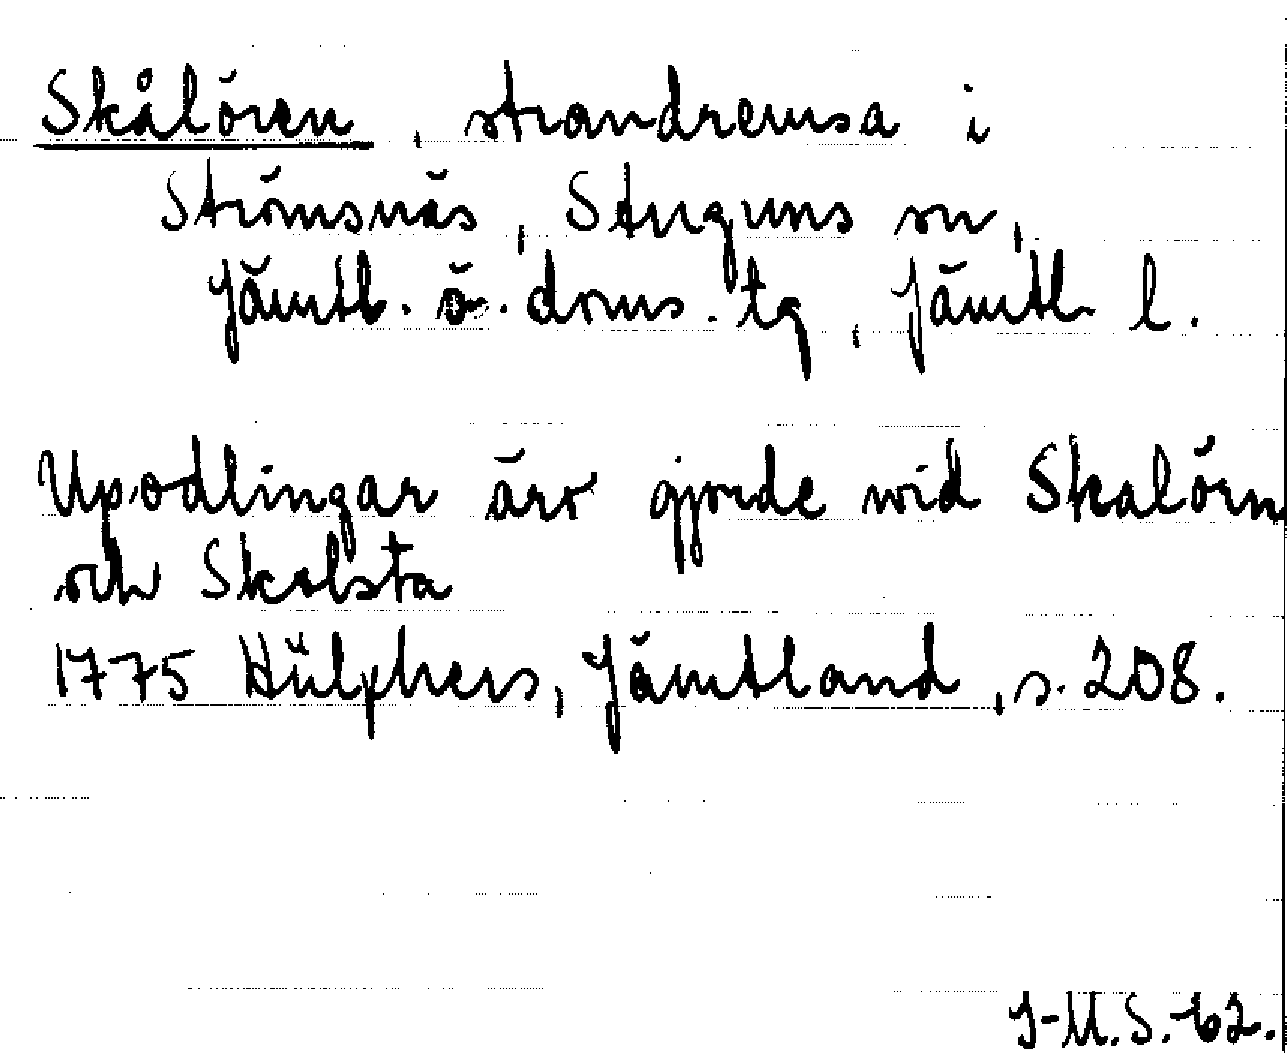 Skålören, strandremsa i
Strömsnäs, Stuguns sn,
Jämtl. ö. doms. tg, Jämtl l.
Upodlingar äro gjorde wid Skalörn
och Skalsta
1775 Hülphers, Jämtland, s. 208.
J-M.S.-62.